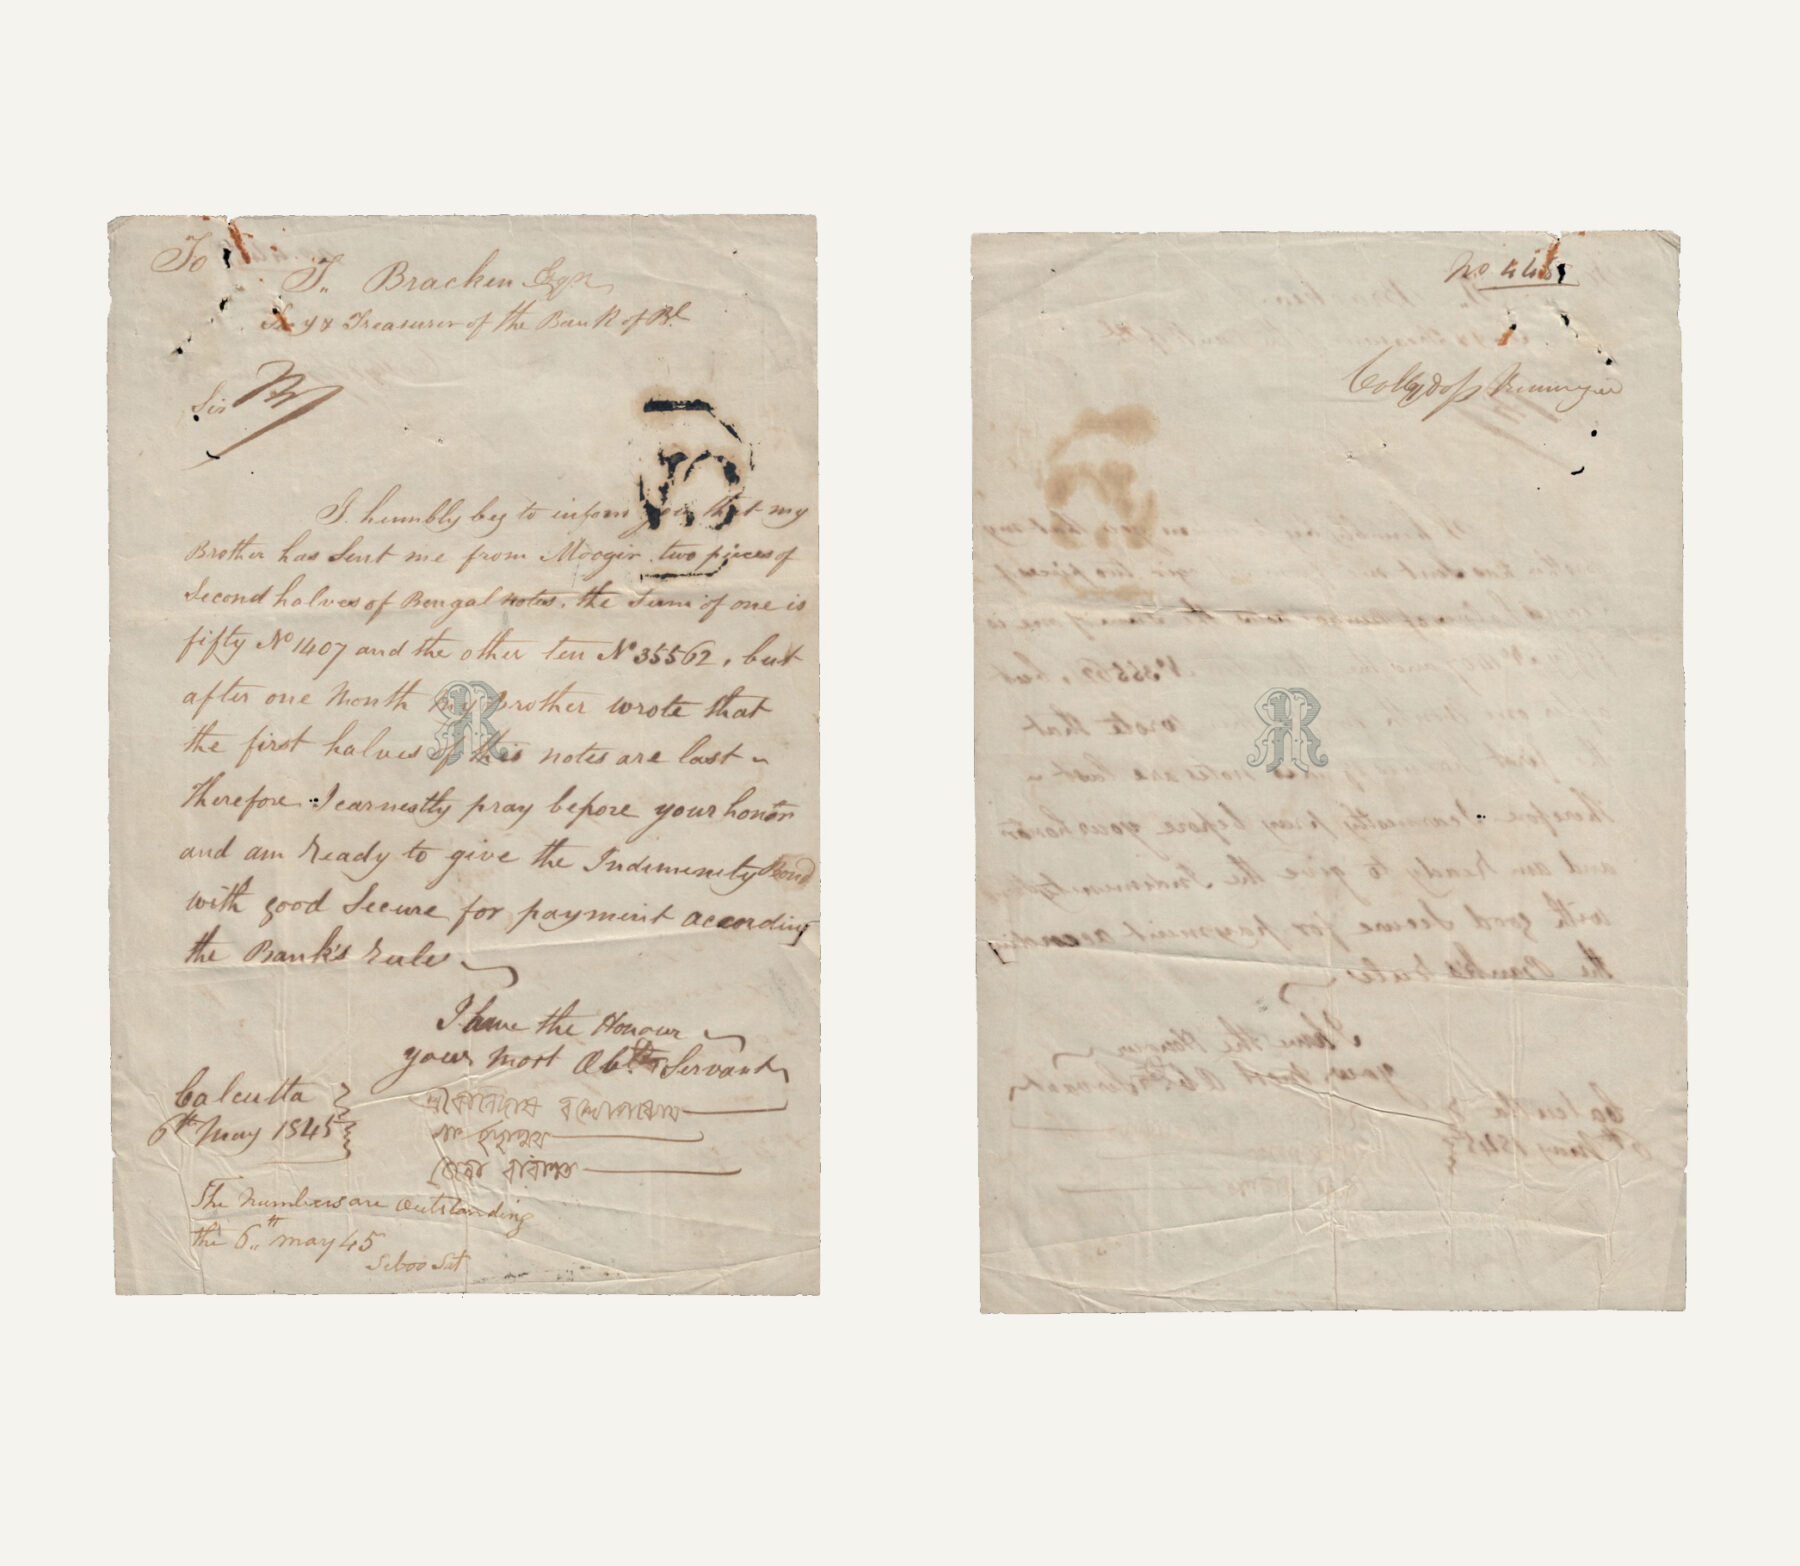 To
T,, Bracken Esqr
Secy & Treasurer of the Bank of Bl
Sir
I humbly beg to inform you that my
Brother has sent me from Moogir two pieces of
Second halves of Bengal notes, the Sum of one is
fifty No 1407 and the other ten No 35562, but
after one Month my brother wrote that
the first halves of this notes are last
therefore I earnestly pray before your honor
and am ready to give the Indimenity Bond
with good Secure for payment according
the Bank's rule
I have the Honour
your most Obt Servant
Calcutta
6th May 1845
সাং
The Numbers are Outstanding
the 6,,th may 45
Seboo Set
No 445
Collydoss